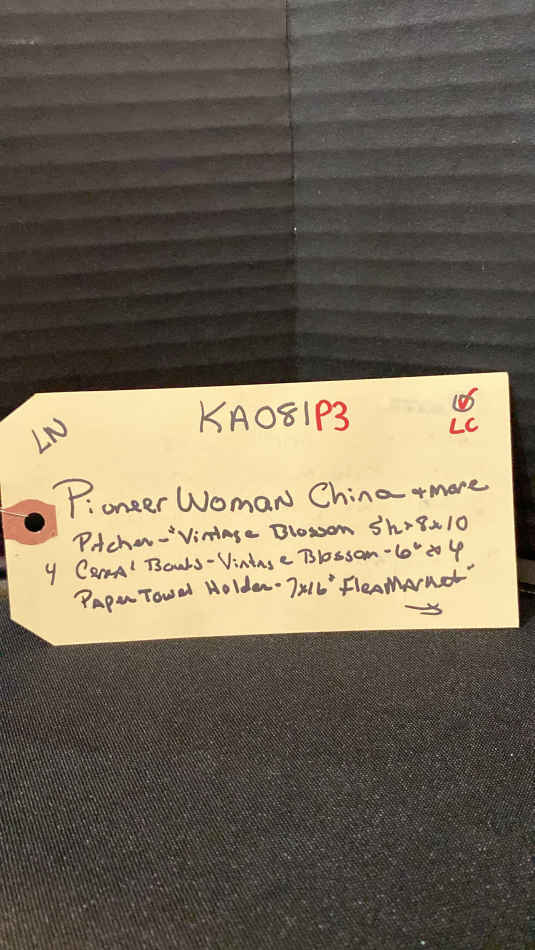 LN
KA081P3
LC
Pioneer Woman China + more
Pitcher - "Vintage Blossom 5"h x 8 x 10
4 Cereal Bowls - Vintage Blossom - 6" x 4
Paper Towel Holder - 7x16" Flea Market"